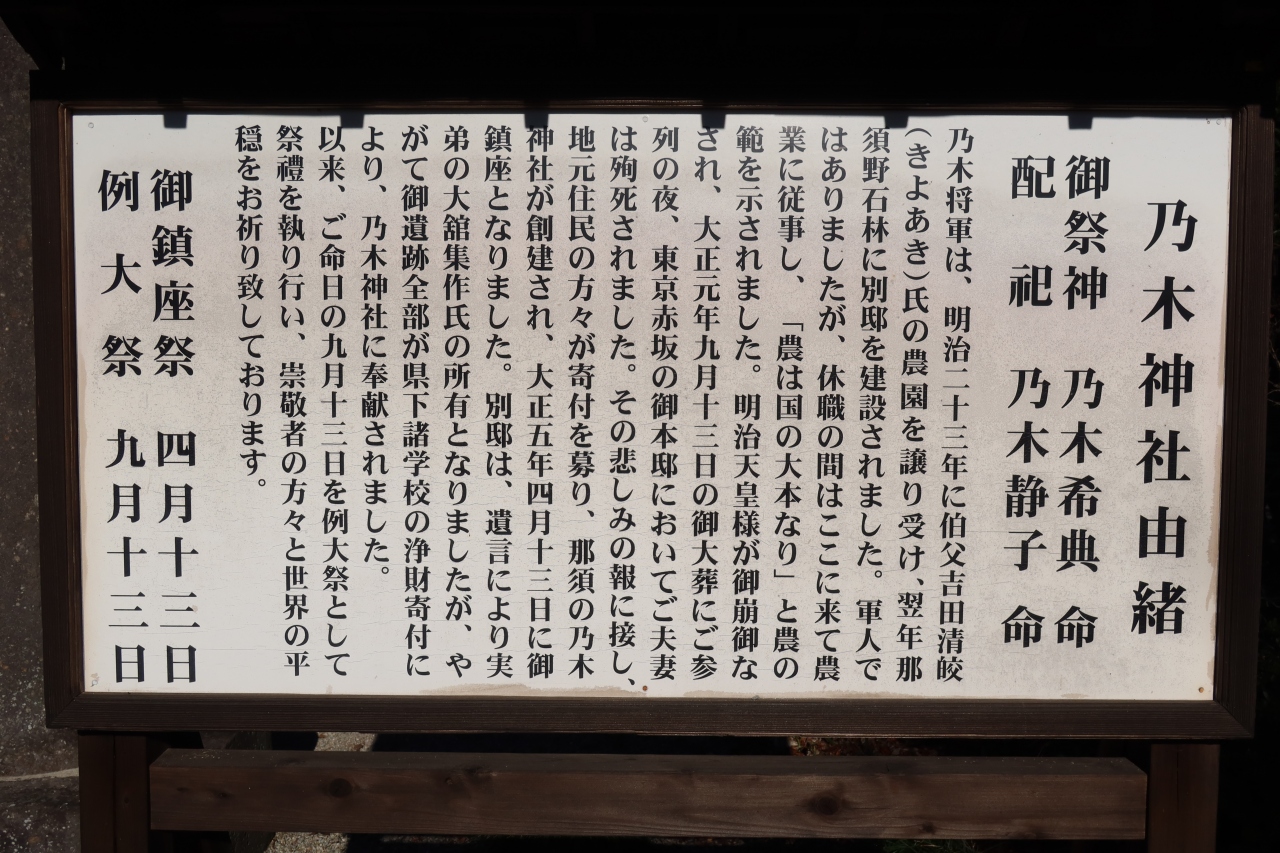 乃木神社由緒
御祭神　乃木希典　命
配　祀　乃木静子　命
乃木将軍は、明治二十三年に伯父吉田清皎
（きよあき）氏の農園を譲り受け、翌年那
須野石林に別邸を建設されました。軍人で
はありましたが、休職の間はここに来て農
業に従事し、「農は国の大本なり」と農の
範を示されました。明治天皇様が御崩御な
され、大正元年九月十三日の御大葬にご参
列の夜、東京赤坂の御本邸においてご夫妻
は殉死されました。その悲しみの報に接し、
地元住民の方々が寄付を募り、那須の乃木
神社が創建され、大正五年四月十三日に御
鎮座となりました。別邸は、遺言により実
弟の大舘集作氏の所有となりましたが、や
がて御遺跡全部が県下諸学校の浄財寄付に
より、乃木神社に奉献されました。
以来、ご命日の九月十三日を例大祭として
祭禮を執り行い、崇敬者の方々と世界の平
穏をお祈り致しております。
御鎮座祭　四月十三日
例大祭　九月十三日